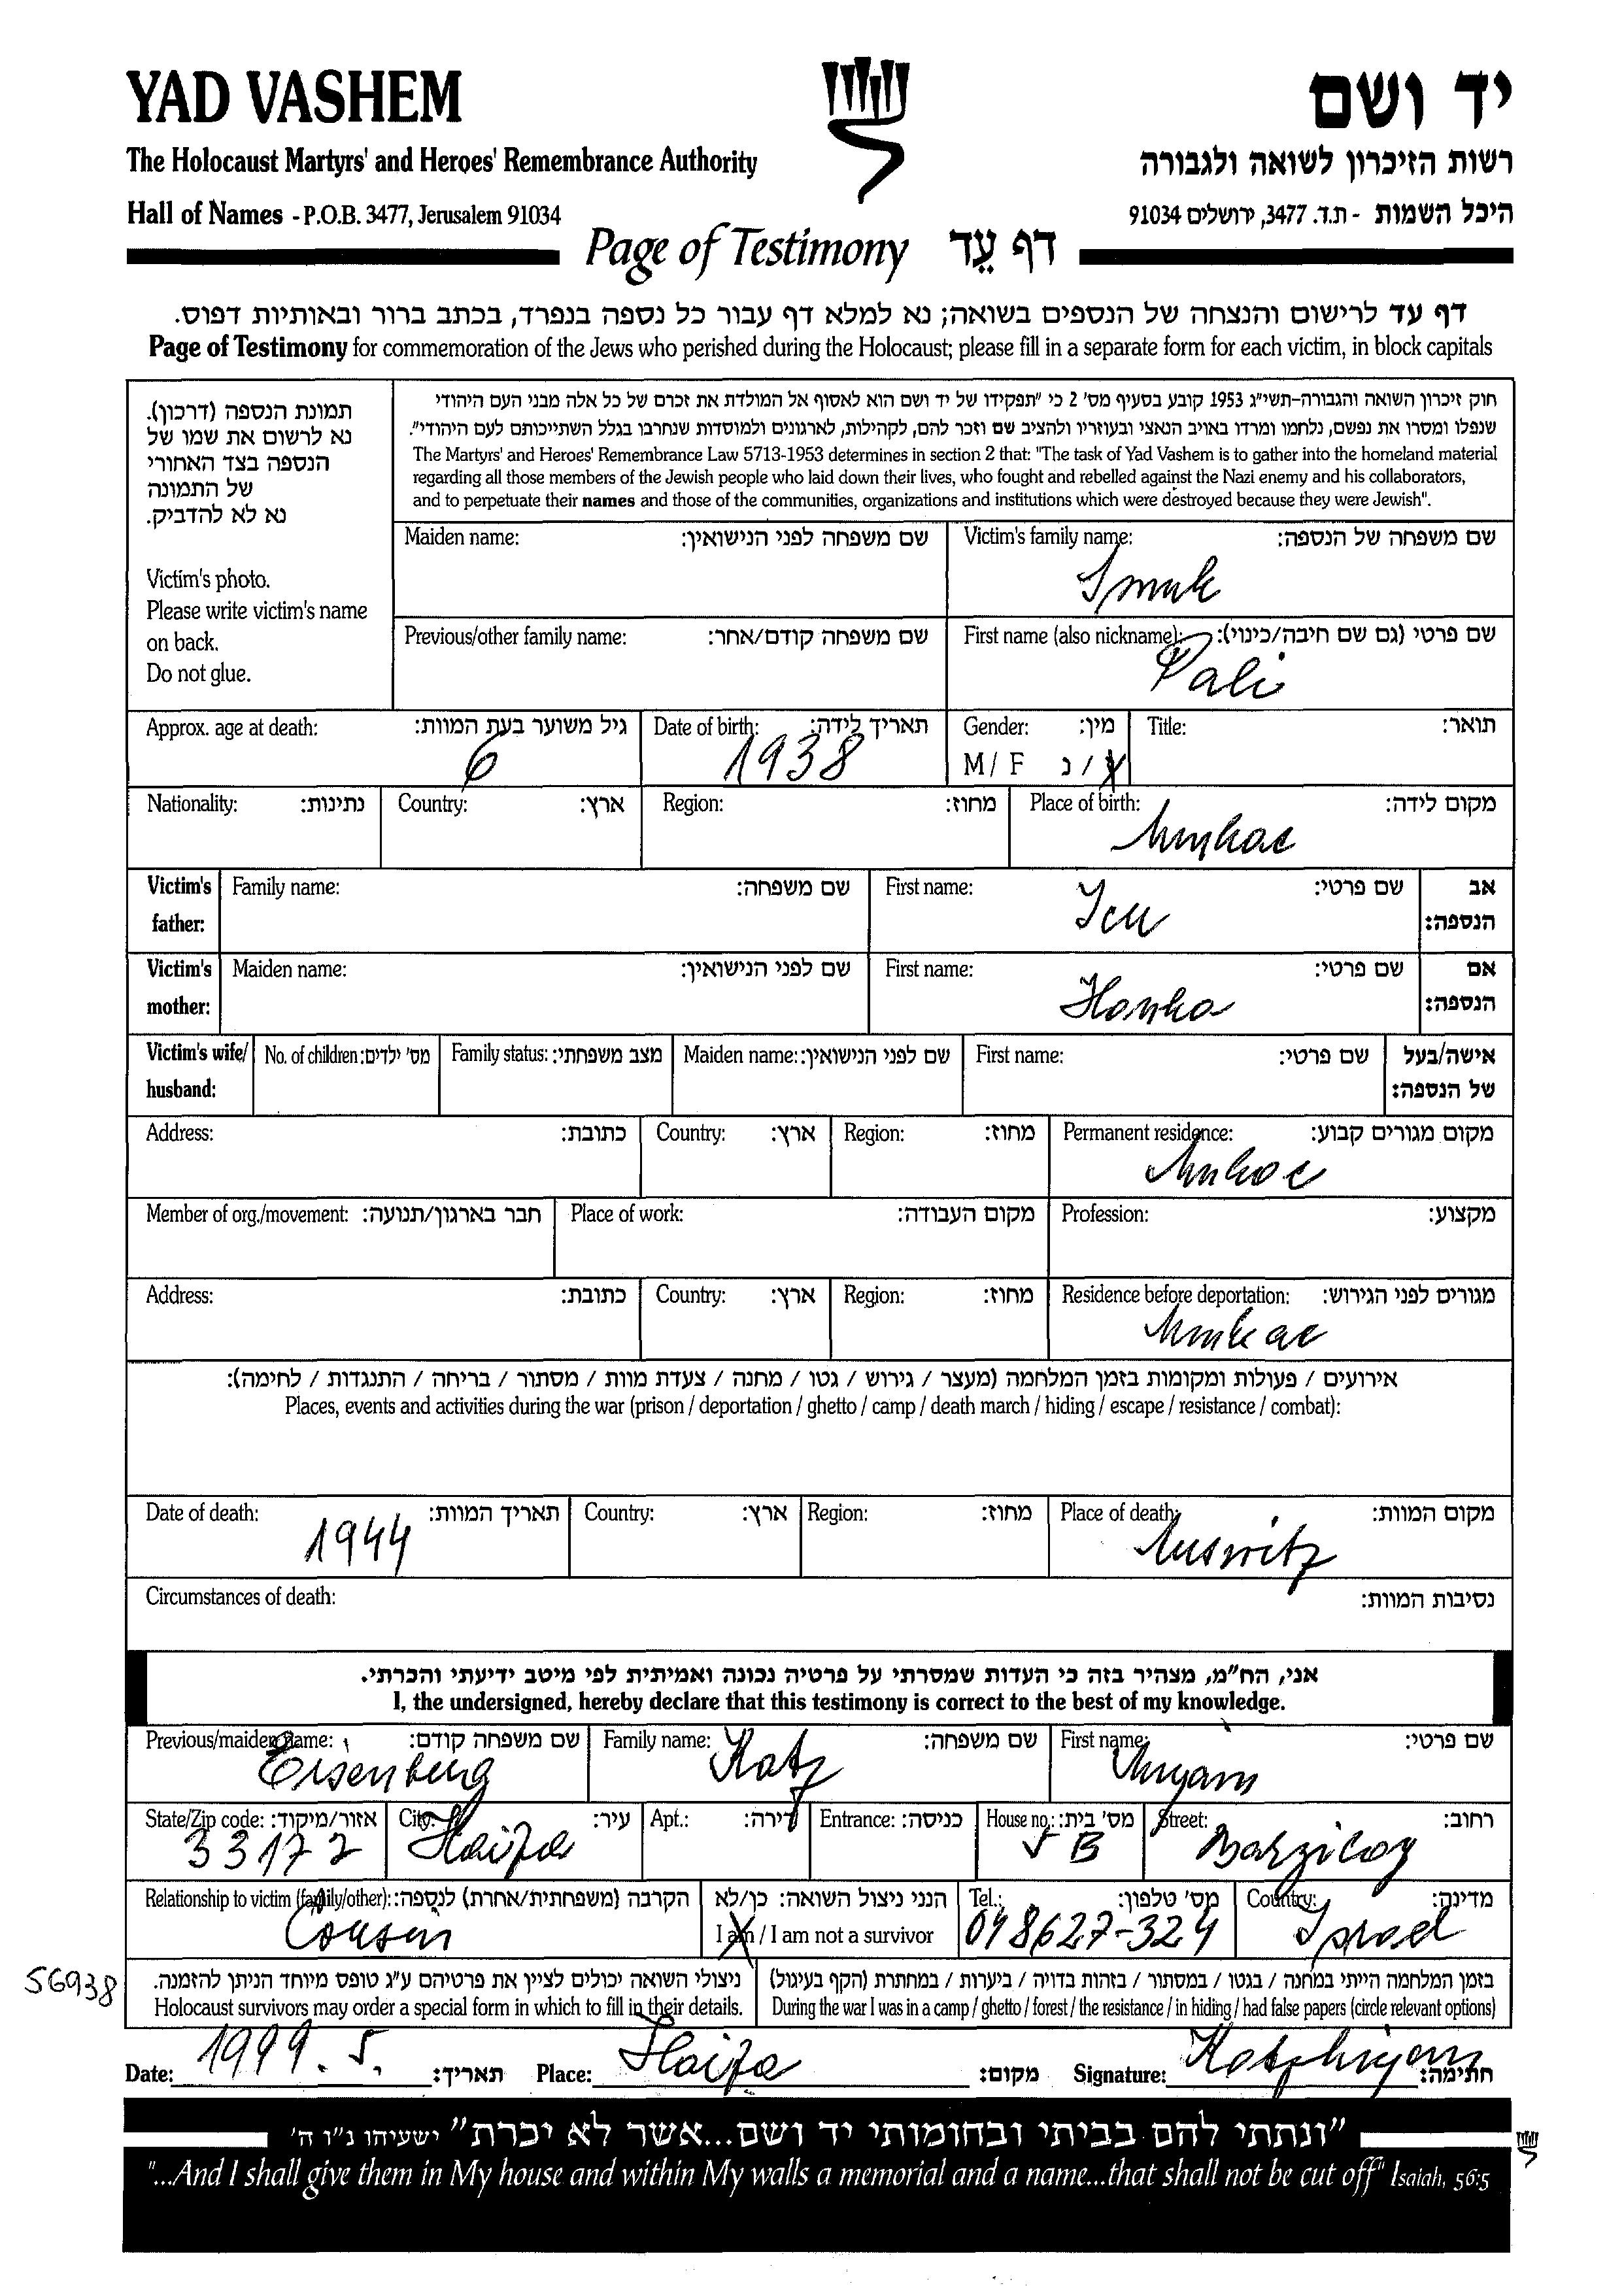 YAD VASHEM
יד ושם
The Holocaust Martyrs' and Heroes' Remembrance Authority
רשות הזיכרון לשואה ולגבורה
Hall of Names - P.O.B. 3477, Jerusalem 91034
היכל השמות - ת.ד. 3477, ירושלים 91034
Page of Testimony דף עֵד
דף עד לרישום והנצחה של הנספים בשואה; נא למלא דף עבור כל נספה בנפרד, בכתב ברור ובאותיות דפוס.
Page of Testimony for commemoration of the Jews who perished during the Holocaust; please fill in a separate form for each victim, in block capitals
תמונת הנספה (דרכון).
נא לרשום את שמו של
הנספה בצד האחורי
של התמונה
נא לא להדביק.
Victim's photo.
Please write victim's name
on back.
Do not glue.
חוק זיכרון השואה והגבורה-תשי"ג 1953 קובע בסעיף מס' 2 כי "תפקידו של יד ושם הוא לאסוף אל המולדת את זכרם של כל אלה מבני העם היהודי
שנפלו ומסרו את נפשם, נלחמו ומרדו באויב הנאצי ובעוזריו ולהציב שם וזכר להם, לקהילות, לארגונים ולמוסדות שנחרבו בגלל השתייכותם לעם היהודי".
The Martyrs' and Heroes' Remembrance Law 5713-1953 determines in section 2 that: "The task of Yad Vashem is to gather into the homeland material
regarding all those members of the Jewish people who laid down their lives, who fought and rebelled against the Nazi enemy and his collaborators,
and to perpetuate their names and those of the communities, organizations and institutions which were destroyed because they were Jewish".
Maiden name: שם משפחה לפני הנישואין:
Victim's family name: שם משפחה של הנספה:
Smuk
Previous/other family name: שם משפחה קודם/אחר:
First name (also nickname): שם פרטי (גם שם חיבה/כינוי):
Pali
Approx. age at death: גיל משוער בעת המוות:
6
Date of birth: תאריך לידה:
1938
Gender: מין:
M / F ז / נ
Title: תואר:
Nationality: נתינות:
Country: ארץ:
Region: מחוז:
Place of birth: מקום לידה:
Munkac
Victim's father:
Family name: שם משפחה:
First name: שם פרטי:
אב הנספה:
Victim's mother:
Maiden name: שם לפני הנישואין:
First name: שם פרטי:
אם הנספה:
Victim's wife/ husband:
No. of children: מס' ילדים:
Family status: מצב משפחתי:
Maiden name: שם לפני הנישואין:
First name: שם פרטי:
אישה/בעל של הנספה:
Address: כתובת:
Country: ארץ:
Region: מחוז:
Permanent residence: מקום מגורים קבוע:
Munkac
Member of org./movement: חבר בארגון/תנועה:
Place of work: מקום העבודה:
Profession: מקצוע:
Address: כתובת:
Country: ארץ:
Region: מחוז:
Residence before deportation: מגורים לפני הגירוש:
Munkac
אירועים / פעולות ומקומות בזמן המלחמה (מעצר / גירוש / גטו / מחנה / צעדת מוות / מסתור / בריחה / התנגדות / לחימה):
Places, events and activities during the war (prison / deportation / ghetto / camp / death march / hiding / escape / resistance / combat):
Date of death: תאריך המוות:
1944
Country: ארץ:
Region: מחוז:
Place of death: מקום המוות:
Auswitz
Circumstances of death: נסיבות המוות:
אני, הח"מ, מצהיר בזה כי העדות שמסרתי על פרטיה נכונה ואמיתית לפי מיטב ידיעתי והכרתי.
I, the undersigned, hereby declare that this testimony is correct to the best of my knowledge.
Previous/maiden name: שם משפחה קודם:
Eisenberg
Family name: שם משפחה:
Katz
First name: שם פרטי:
Miryam
State/Zip code: אזור/מיקוד:
33172
City: עיר:
Haifa
Apt.: דירה:
Entrance: כניסה:
House no.: מס' בית:
5 B
Street: רחוב:
Barzilay
Relationship to victim (family/other): הקרבה (משפחתית/אחרת) לנספה:
Cousin
הנני ניצול השואה: כן/לא
I am / I am not a survivor
Tel.: מס' טלפון:
048627-324
Country: מדינה:
Israel
56938
ניצולי השואה יכולים לציין את פרטיהם ע"ג טופס מיוחד הניתן להזמנה.
Holocaust survivors may order a special form in which to fill in their details.
בזמן המלחמה הייתי במחנה / בגטו / במסתור / בזהות בדויה / ביערות / במחתרת (הקף בעיגול)
During the war I was in a camp / ghetto / forest / the resistance / in hiding / had false papers (circle relevant options)
Date: 1999.5. תאריך:
Place: Haifa מקום:
Signature: Katz Miryam חתימה:
"ונתתי להם בביתי ובחומותי יד ושם...אשר לא יכרת" ישעיהו נ"ו ה'
"...And I shall give them in My house and within My walls a memorial and a name...that shall not be cut off" Isaiah, 56:5